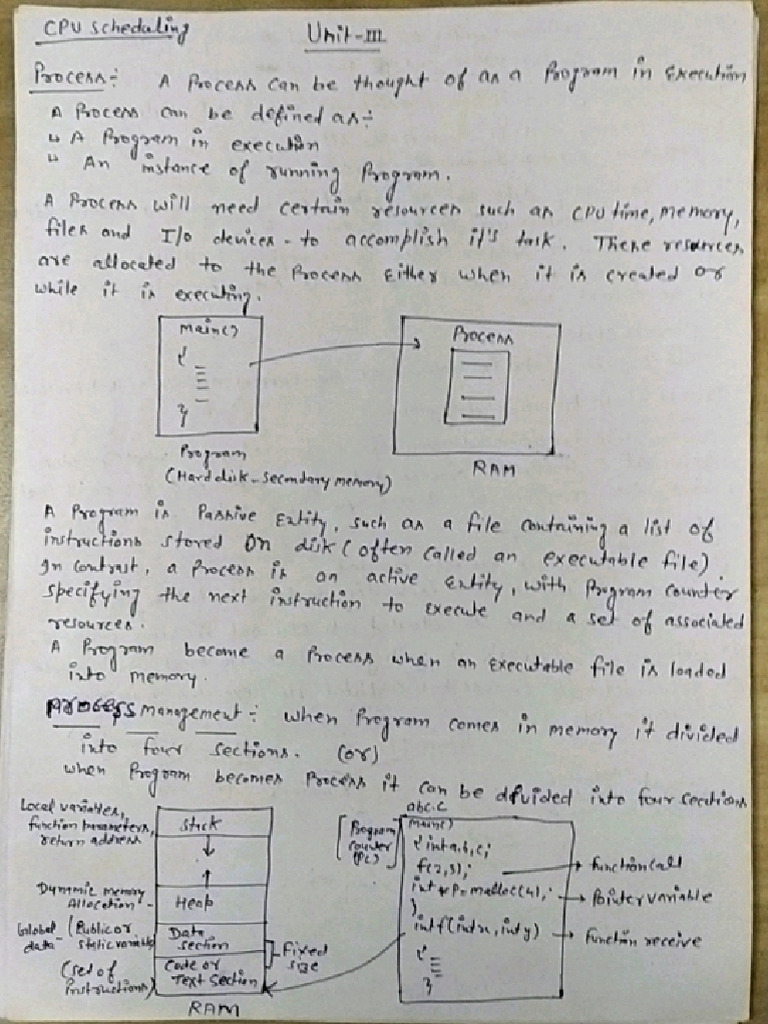 CPU Scheduling
Unit-III
Process:- A Process can be thought of as a Program in Execution
A Process can be defined as:-
↳ A Program in execution
↳ An instance of running Program.
A Process will need certain resources such as CPU time, memory,
files and I/O devices - to accomplish it's task. These resources
are allocated to the Process Either when it is created or
while it is executing.
Main()
{
}
Program
(Hard disk - Secondary memory)
Process
RAM
A Program is Passive Entity, such as a file containing a list of
instructions stored on disk (often called an executable file).
In contrast, a Process is an active Entity, with Program counter
specifying the next instruction to execute and a set of associated
resources.
A Program become a Process when an Executable file is loaded
into memory.
Process Management:- when Program comes in memory it divided
into four sections. (or)
when Program becomes Process it can be divided into four sections
Local variables,
function parameters,
return address
Stick
Dynmic memory
Allocation -
Heap
Global - (Public or
data static variable)
Data
section
(set of
Instructions)
Code or
Text Section
Fixed
size
RAM
[Program
counter
(PC)]
abc.c
main()
{ int a,b,c;
f(2,3);
int *P=malloc(4);
}
int f(int x, int y)
{
}
function call
Pointer variable
function receive